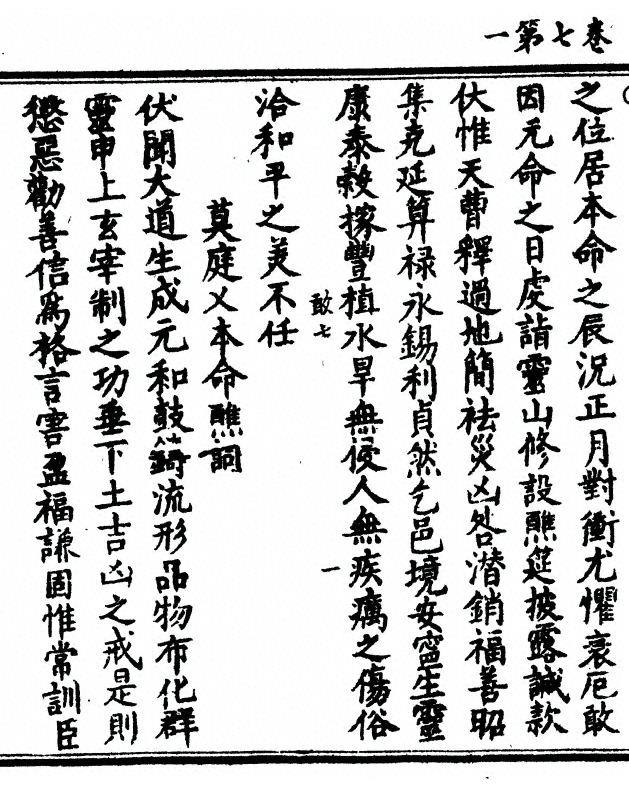 一第七卷
之位居本命之辰況正月對衝尤懼衰厄敢
因元命之日虔詣靈山修設醮筵披露誠款
伏惟天曹釋過地簡祛災凶咎潛銷福善昭
集克延算禄永錫利貞然乞邑境安寧生靈
康泰穀稼豐植水旱無侵人無疾癘之傷俗
敢七
一
洽和平之美不任
莫庭乂本命醮詞
伏聞大道生成元和鼓鑄流形品物布化群
靈申上玄宰制之功垂下土吉凶之戒是則
懲惡勸善信爲格言害盈福謙固惟常訓臣